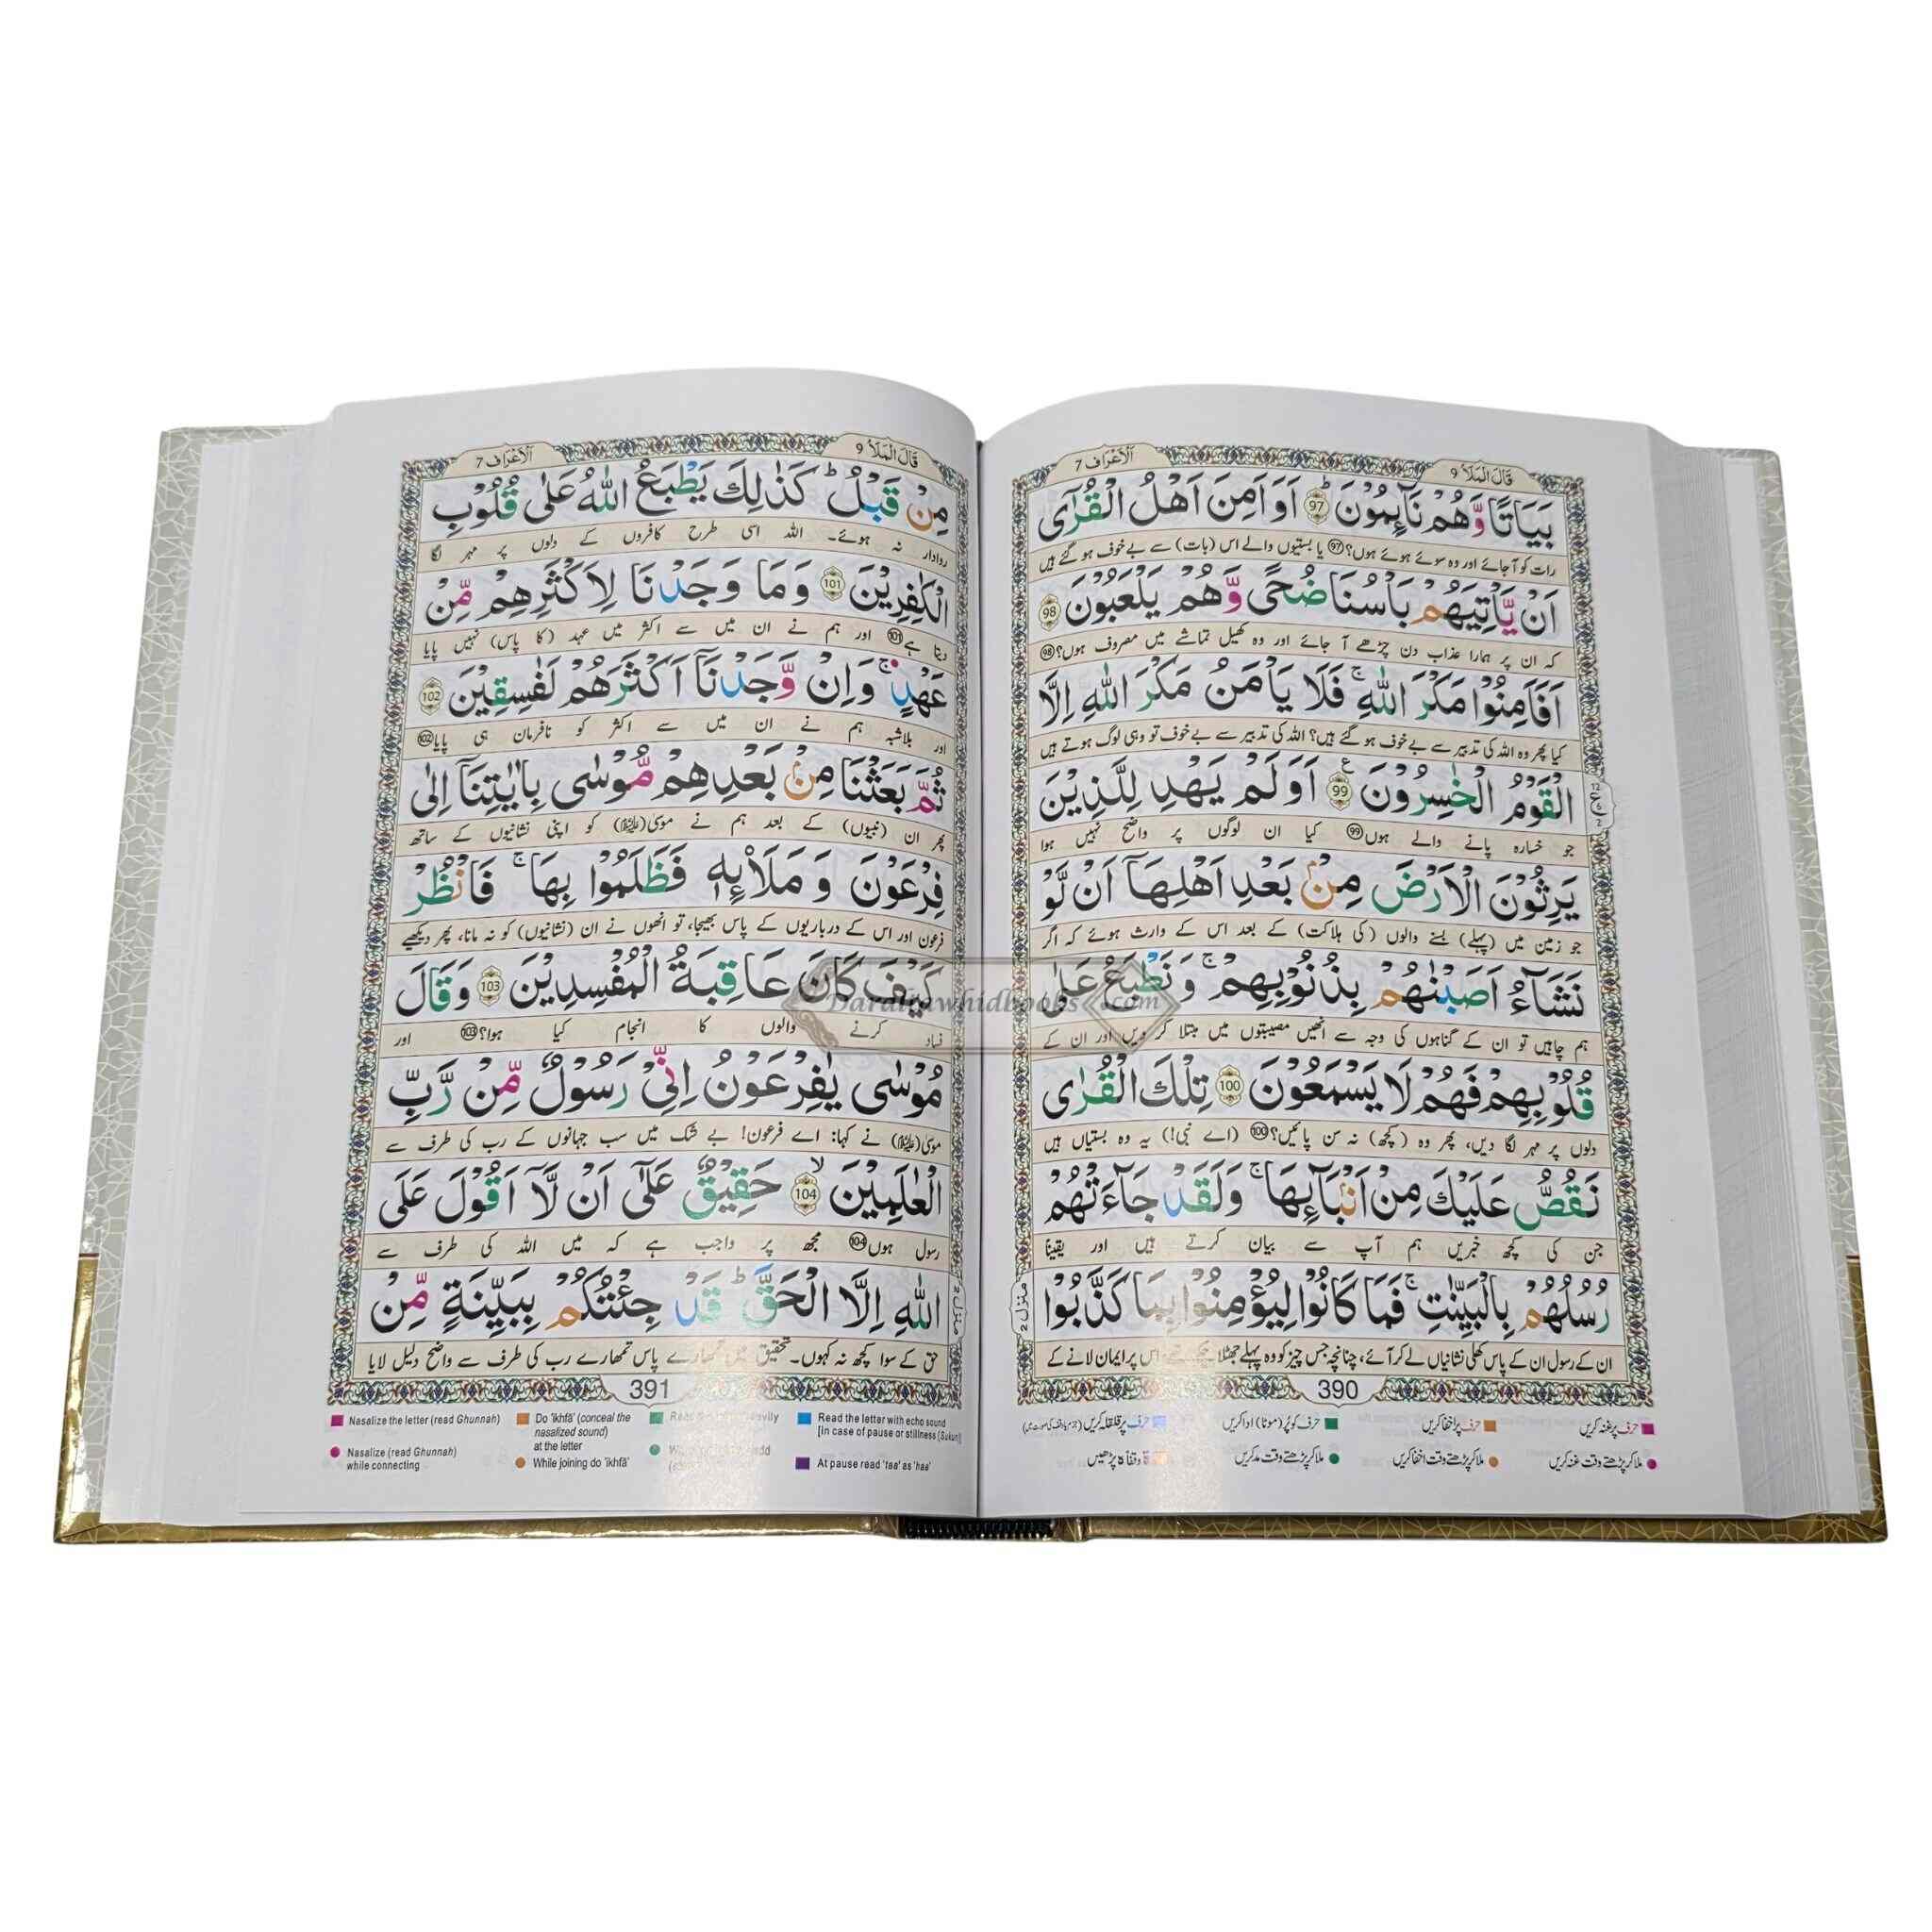 قَالَ الْمَلَاُ 9
اَلْاَعْرَاف 7
بَيَاتًا وَّهُمْ نَآئِمُوْنَ ؕ 97 اَوَاَمِنَ اَهْلُ الْقُرٰٓى
رات کو آ جائے اور وہ سوئے ہوئے ہوں؟ 97 یا بستیوں والے اس (بات) سے بے خوف ہو گئے ہیں
اَنْ يَّاْتِيَهُمْ بَاْسُنَا ضُحًى وَّهُمْ يَلْعَبُوْنَ 98
کہ ان پر ہمارا عذاب دن چڑھے آ جائے اور وہ کھیل تماشے میں مصروف ہوں؟ 98
اَفَاَمِنُوْا مَكْرَ اللّٰهِ ۚ فَلَا يَاْمَنُ مَكْرَ اللّٰهِ اِلَّا
کیا پھر وہ اللہ کی تدبیر سے بے خوف ہو گئے ہیں؟ اللہ کی تدبیر سے بے خوف تو وہی لوگ ہوتے ہیں
الْقَوْمُ الْخٰسِرُوْنَ 99 اَوَلَمْ يَهْدِ لِلَّذِيْنَ
جو خسارہ پانے والے ہوں 99 کیا ان لوگوں پر واضح نہیں ہوا
يَرِثُوْنَ الْاَرْضَ مِنْۢ بَعْدِ اَهْلِهَآ اَنْ لَّوْ
جو زمین میں (پہلے) بسنے والوں (کی ہلاکت) کے بعد اس کے وارث ہوئے کہ اگر
نَشَآءُ اَصَبْنٰهُمْ بِذُنُوْبِهِمْ ۚ وَنَطْبَعُ عَلٰى
ہم چاہیں تو ان کے گناہوں کی وجہ سے انھیں مصیبتوں میں مبتلا کر دیں اور ان کے
قُلُوْبِهِمْ فَهُمْ لَا يَسْمَعُوْنَ 100 تِلْكَ الْقُرٰى
دلوں پر مہر لگا دیں، پھر وہ (کچھ) نہ سن پائیں؟ 100 (اے نبی!) یہ وہ بستیاں ہیں
نَقُصُّ عَلَيْكَ مِنْ اَنْۢبَآئِهَا ۚ وَلَقَدْ جَآءَتْهُمْ
جن کی کچھ خبریں ہم آپ سے بیان کرتے ہیں اور یقیناً
رُسُلُهُمْ بِالْبَيِّنٰتِ ۚ فَمَا كَانُوْا لِيُؤْمِنُوْا بِمَا كَذَّبُوْا
ان کے رسول ان کے پاس کھلی نشانیاں لے کر آئے، چنانچہ جس چیز کو وہ پہلے جھٹلا چکے تھے، اس پر ایمان لانے کے
منزل 2
390
حرف پر غنہ کریں
حرف پر اخفا کریں
حرف کو پُر (موٹا) ادا کریں
حرف پر قلقلہ کریں
ملا کر پڑھتے وقت غنہ کریں
ملا کر پڑھتے وقت اخفا کریں
ملا کر پڑھتے وقت مد کریں
قَالَ الْمَلَاُ 9
اَلْاَعْرَاف 7
مِنْ قَبْلُ ؕ كَذٰلِكَ يَطْبَعُ اللّٰهُ عَلٰى قُلُوْبِ
روادار نہ ہوئے۔ اللہ اسی طرح کافروں کے دلوں پر مہر لگا
الْكٰفِرِيْنَ 101 وَمَا وَجَدْنَا لِاَكْثَرِهِمْ مِّنْ
دیتا ہے 101 اور ہم نے ان میں سے اکثر میں عہد (کا پاس) نہیں پایا
عَهْدٍ ۚ وَاِنْ وَّجَدْنَآ اَكْثَرَهُمْ لَفٰسِقِيْنَ 102
اور بلاشبہ ہم نے ان میں سے اکثر کو نافرمان ہی پایا 102
ثُمَّ بَعَثْنَا مِنْۢ بَعْدِهِمْ مُّوْسٰى بِاٰيٰتِنَآ اِلٰى
پھر ان (نبیوں) کے بعد ہم نے موسیٰ (علیہ السلام) کو اپنی نشانیوں کے ساتھ
فِرْعَوْنَ وَمَلَا۟ئِهٖ فَظَلَمُوْا بِهَا ۚ فَانْظُرْ
فرعون اور اس کے درباریوں کے پاس بھیجا، تو انھوں نے ان (نشانیوں) کو نہ مانا، پھر دیکھیے
كَيْفَ كَانَ عَاقِبَةُ الْمُفْسِدِيْنَ 103 وَقَالَ
فساد کرنے والوں کا انجام کیا ہوا؟ 103 اور
مُوْسٰى يٰفِرْعَوْنُ اِنِّيْ رَسُوْلٌ مِّنْ رَّبِّ
موسیٰ (علیہ السلام) نے کہا: اے فرعون! بے شک میں سب جہانوں کے رب کی طرف سے
الْعٰلَمِيْنَ ۙ 104 حَقِيْقٌ عَلٰٓى اَنْ لَّآ اَقُوْلَ عَلَى
رسول ہوں 104 مجھ پر واجب ہے کہ میں اللہ کی طرف سے
اللّٰهِ اِلَّا الْحَقَّ ؕ قَدْ جِئْتُكُمْ بِبَيِّنَةٍ مِّنْ
حق کے سوا کچھ نہ کہوں۔ تحقیق میں تمھارے پاس تمھارے رب کی طرف سے واضح دلیل لایا
منزل 2
391
Nasalize the letter (read Ghunnah)
Do 'ikhfā' (conceal the
nasalized sound)
at the letter
Read the letter with echo sound
[in case of pause or stillness (Sukun)]
Nasalize (read Ghunnah)
while connecting
While joining do 'ikhfā'
At pause read 'taa' as 'haa'
Daraltawhidbooks.com